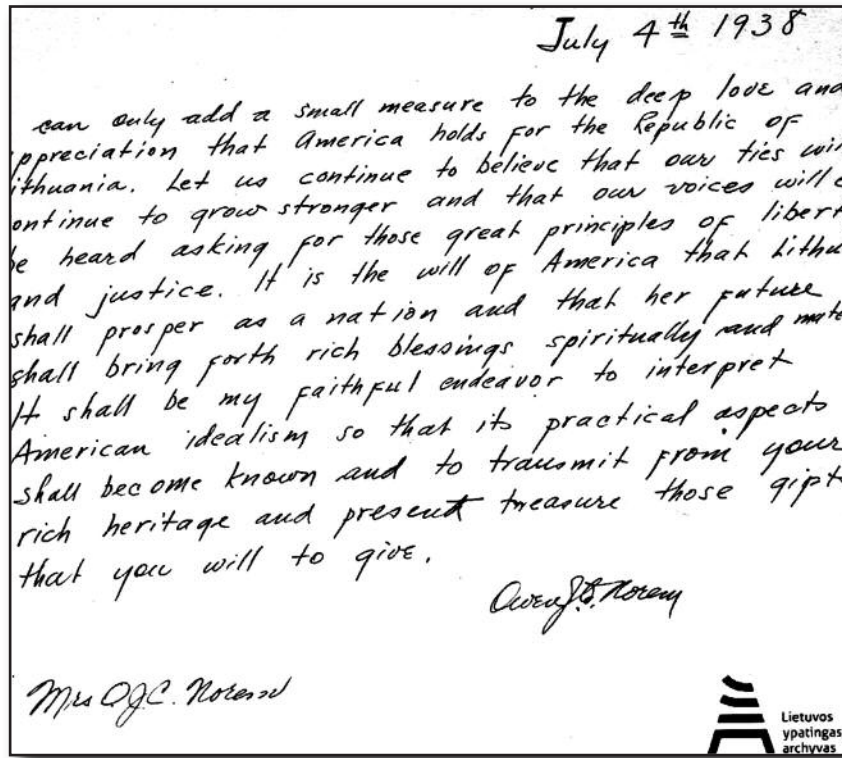 July 4th 1938
can only add a small measure to the deep love and
ppreciation that America holds for the Republic of
ithuania. Let us continue to believe that our ties wil
ontinue to grow stronger and that our voices will
be heard asking for those great principles of libert
and justice. It is the will of America that Lithu
shall prosper as a nation and that her future
shall bring forth rich blessings spiritually and mate
It shall be my faithful endeavor to interpret
American idealism so that its practical aspects
shall become known and to transmit from your
rich heritage and present treasure those gift
that you will to give.
Owen J.C. Norem
Mrs O.J.C. Norem
Lietuvos
ypatingas
archyvas